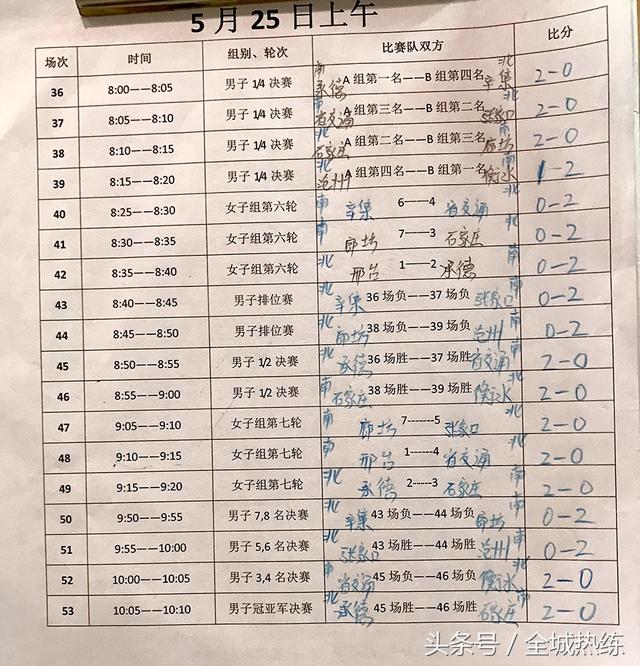 5月25日上午
场次 时间 组别、轮次 比赛队双方 比分
36 8:00——8:05 男子1/4决赛 南 承德 A组第一名——B组第四名 辛集 北 2-0
37 8:05——8:10 男子1/4决赛 南 省交通 A组第三名——B组第二名 张家口 北 2-0
38 8:10——8:15 男子1/4决赛 北 石家庄 A组第二名——B组第三名 廊坊 南 2-0
39 8:15——8:20 男子1/4决赛 北 沧州 A组第四名——B组第一名 衡水 南 1-2
40 8:25——8:30 女子组第六轮 南 辛集 6——4 省交通 北 0-2
41 8:30——8:35 女子组第六轮 南 廊坊 7——3 石家庄 北 0-2
42 8:35——8:40 女子组第六轮 北 邢台 1——2 承德 南 0-2
43 8:40——8:45 男子排位赛 北 辛集 36场负——37场负 张家口 南 0-2
44 8:45——8:50 男子排位赛 北 廊坊 38场负——39场负 沧州 南 0-2
45 8:50——8:55 男子1/2决赛 北 承德 36场胜——37场胜 省交通 南 2-0
46 8:55——9:00 男子1/2决赛 南 石家庄 38场胜——39场胜 衡水 北 2-0
47 9:05——9:10 女子组第七轮 南 廊坊 7------5 张家口 北 2-0
48 9:10——9:15 女子组第七轮 南 邢台 1-------4 省交通 北 2-0
49 9:15——9:20 女子组第七轮 北 承德 2-----3 石家庄 南 2-0
50 9:50——9:55 男子7,8名决赛 北 辛集 43场负——44场负 廊坊 南 0-2
51 9:55——10:00 男子5,6名决赛 北 张家口 43场胜——44场胜 沧州 南 0-2
52 10:00——10:05 男子3,4名决赛 南 省交通 45场负——46场负 衡水 北 2-0
53 10:05——10:10 男子冠亚军决赛 北 承德 45场胜——46场胜 石家庄 南 2-0
头条号 / 全城热练